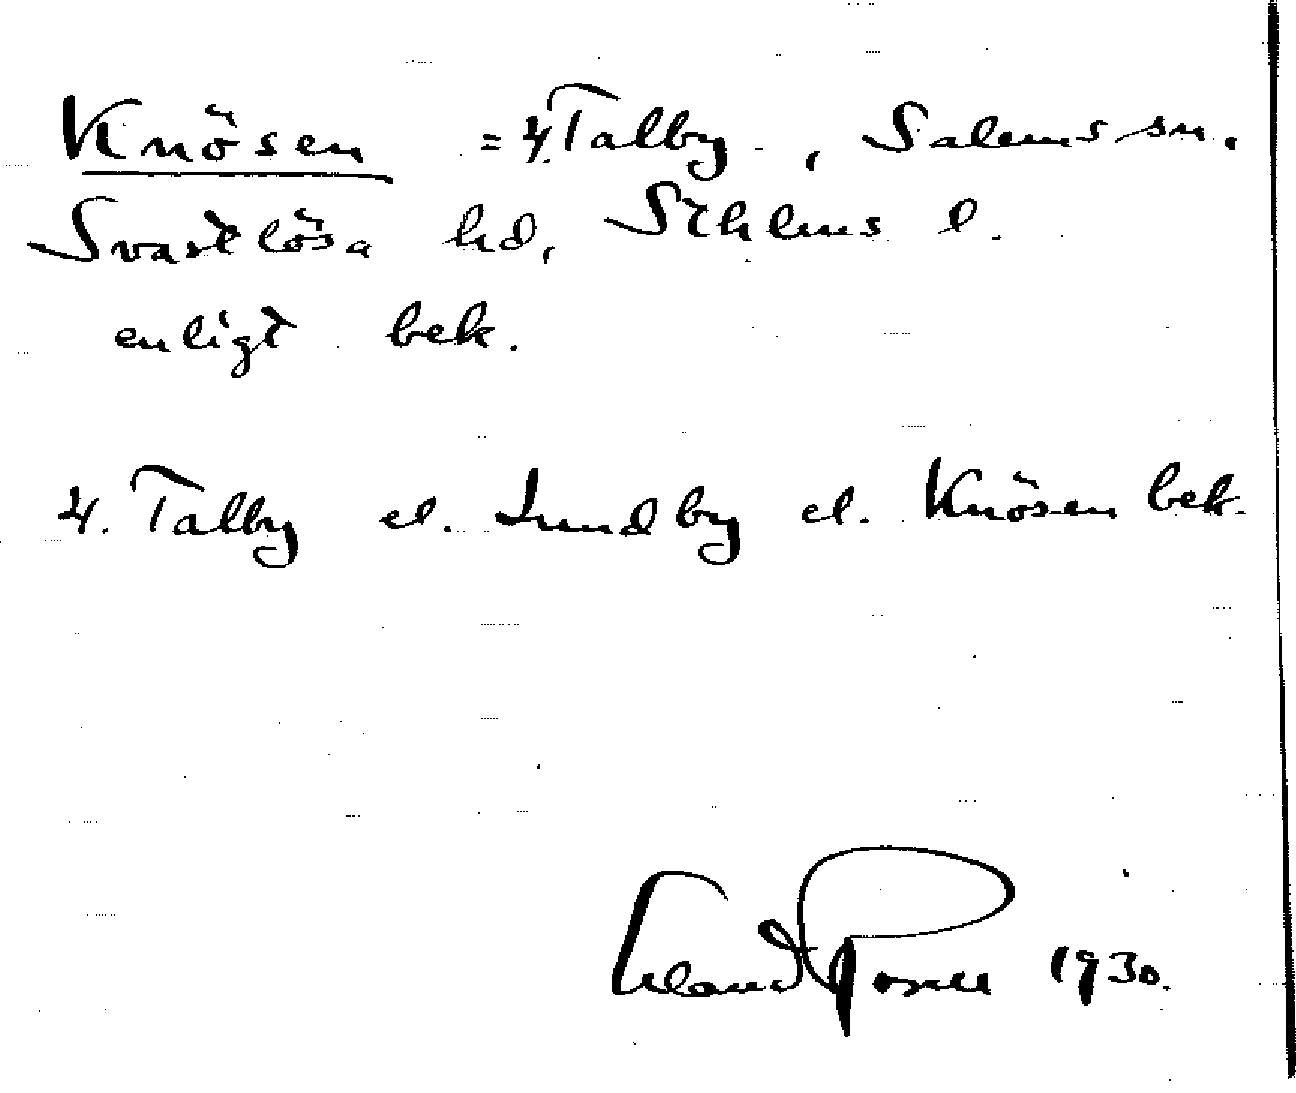 Knösen = 4. Talby, Salems sn.
Svartlösa hd, Sthlms l.
enligt bek.
4. Talby el. Lundby el. Knösen bek.
Erland Rosell 1930.